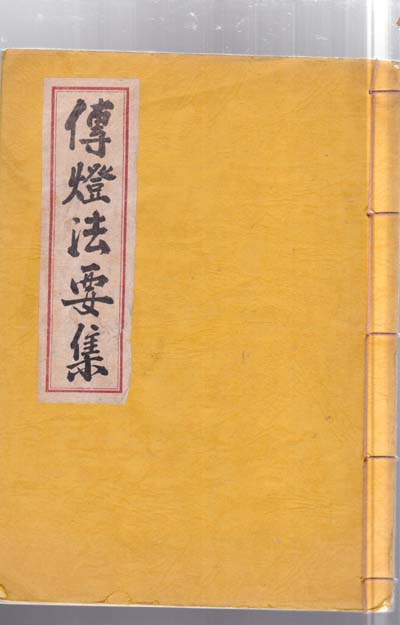 傳燈法要集